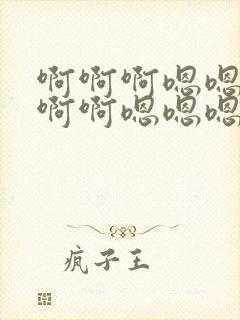 啊啊啊嗯嗯
啊啊嗯嗯嗯
疯子王